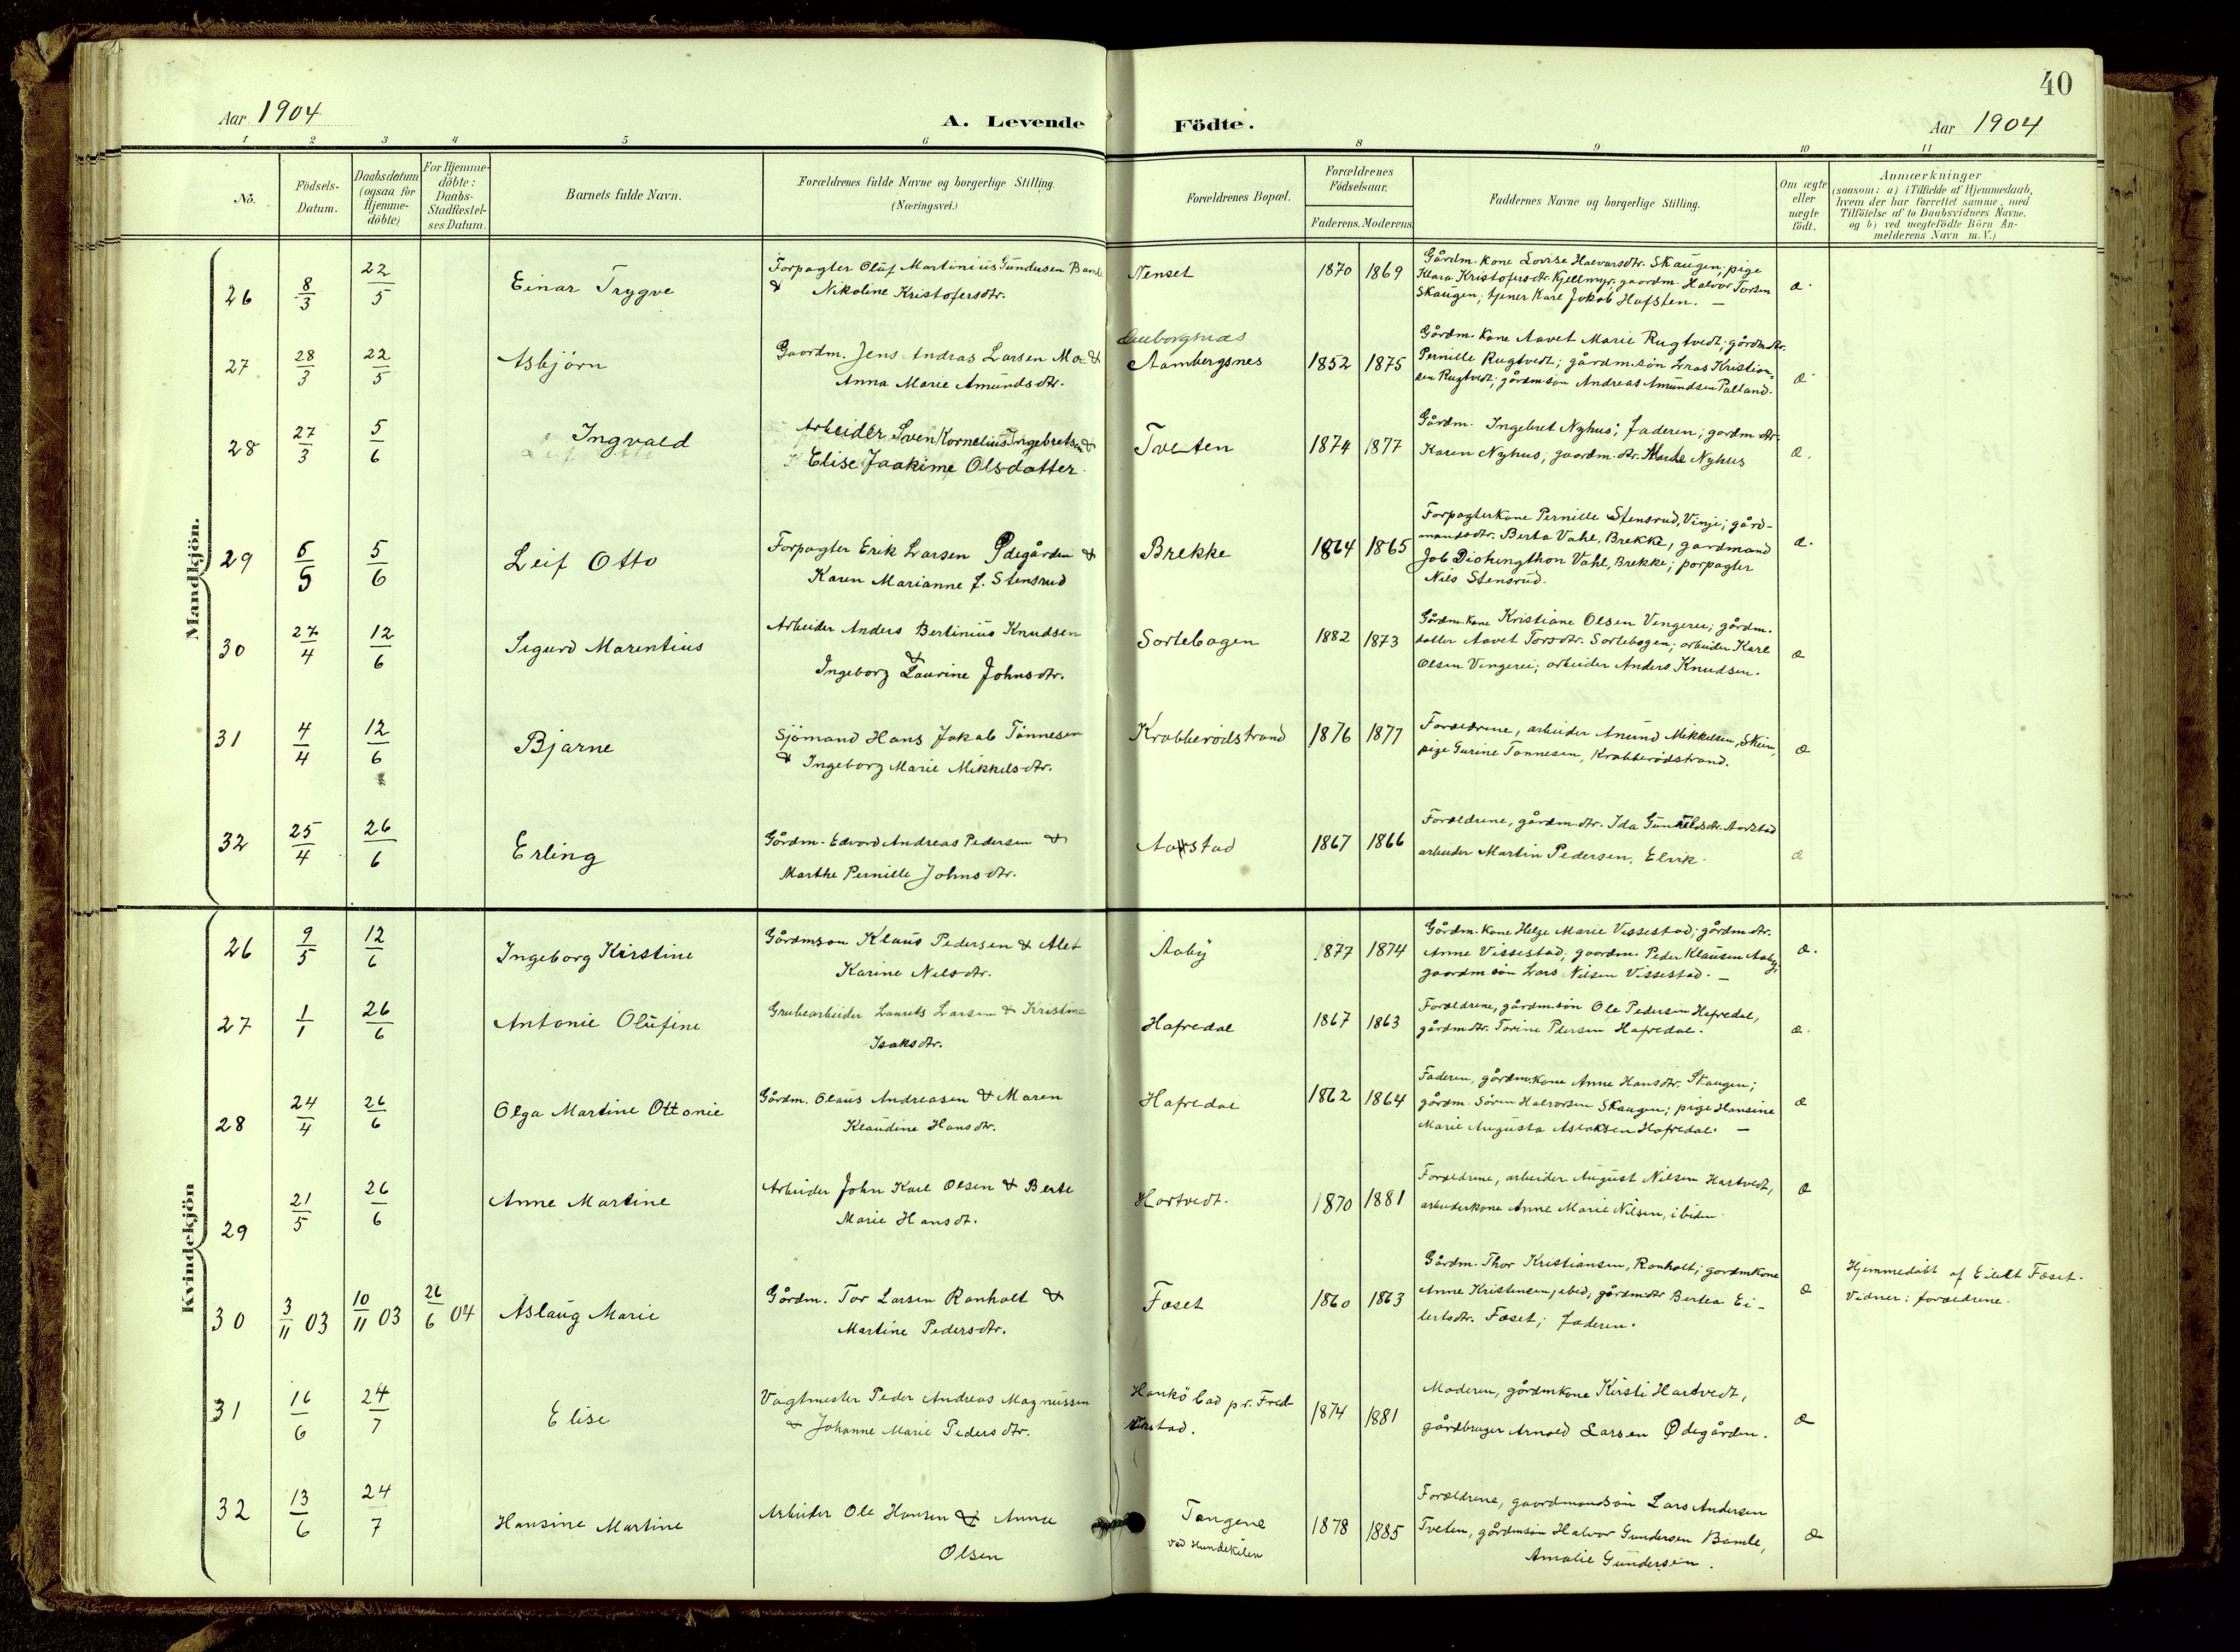 40
Aar 1904
A. Levende Födte.
Aar 1904
1 2 3 4 5 6 8 9 10 11
No.
Födsels-
Datum.
Daabsdatum
(ogsaa for
Hjemme-
döbte)
For Hjemme-
döbte:
Daabs-
Stadfæstel-
ses Datum.
Barnets fulde Navn.
Forældrenes fulde Navne og borgerlige Stilling.
(Næringsvei.)
Forældrenes Bopæl.
Forældrenes
Födselsaar.
Faderens. Moderens.
Faddernes Navne og borgerlige Stilling.
Om ægte
eller
uægte
födt.
Anmærkninger
(saasom: a) i Tilfælde af Hjemmedaab,
hvem der har forrettet samme, med
Tilföielse af to Daabsvidners Navne.
og b) ved uægtefödte Börn An-
melderens Navn m. V.)
Mandkjön.
26 8/3 22/5 Einar Trygve
Forpagter Oluf Martinius Gundersen Bamle
& Nikoline Kristofersdtr.
Nenset 1870 1869
Gårdm. kone Lovise Halvorsdtr. Skaugen; pige
Klara Kristofersdtr. Kjellmyr; gaardm. Halvor Torsen
Skaugen; tjener Karl Jakob Hafsten. —
æ.
27 28/3 22/5 Asbjörn
Gaardm. Jens Andras Larsen Moe &
Anna Marie Amundsdtr.
Aambergsnes 1852 1875
Gårdm. kone Aavet Marie Rugtvedt; gårdmdtr.
Pernille Rugtvedt; gårdm.sön Lras Kristian-
sen Rugtvedt; gårdmsön Andreas Amundsen Valland.
æ.
28 27/3 5/6 Ingvald
Arbeider Sven Kornelius Ingebretsen &
Elise Joakime Olsdatter.
Tveten 1874 1877
Gårdm. Ingebret Nyhus; faderen; gårdm dtr.
Karen Nyhus; gaardm. dtr. Marthe Nyhus
æ.
29 6/5 5/6 Leif Otto
Forpagter Erik Larsen Ødegården &
Karen Marianne J. Stensrud
Brekke 1864 1865
Forpagterkone Pernille Stensrud, Vinje; gård-
mandsdtr. Berta Vahl, Brekke, gardmand
Job Vahl, Brekke; porpagter
Nils Stensrud.
æ.
30 27/4 12/6 Sigurd Marentius
Arbeider Anders Bertinius Knudsen
&
Ingeborg Laurine Johnsdtr.
Sortebogen 1882 1873
Gårdm. kone Kristiane Olsen Vengerei; gårdm.
datter Aavet Torsdtr. Sortebogen; arbeider Karl
Olsen Vengerei; arbeider Anders Knudsen.
æ
31 4/4 12/6 Bjarne
Sjömand Hans Jakob Tönnesen
& Ingeborg Marie Mikkelsdtr.
Krabberödstrand 1876 1877
Forældrene, arbeider Anund Mikkelsen, Skien,
pige Gurine Tönnesen, Krabberödstrand.
æ
32 25/4 26/6 Erling
Gårdm. Edvard Andreas Pedersen &
Marthe Pernille Johnsdtr.
Aarstad 1867 1866
Forældrene, gårdmdtr. Ida Gunuldsdtr. Aarstad
arbeider Martin Pedersen, Elvik.
æ
Kvindekjön
26 9/5 12/6 Ingeborg Kirstine
Gårdmson Klaus Pedersen & Alet
Karine Nilsdtr.
Aaby 1877 1874
Gårdm. kone Helge Marie Vissestad; gårdm dtr.
Anne Vissestad; gaardm. Peder Klausen Aaby;
gaardm sön Lars Nilsen Vissestad. —
æ.
27 1/1 26/6 Antonie Olufine
Grubearbeider Laurits Larsen & Kristine
Isaksdtr.
Hafredal 1867 1863
Forældrene, gårdmsön Ole Pedersen Hafredal,
gårdmdtr. Torine Pdersen Hafredal.
æ.
28 24/4 26/6 Olga Martine Ottonie
Gårdm. Olaus Andreasen & Maren
Klaudine Hansdtr.
Hafredal 1862 1864
Faderen, gårdm.kone Anne Hansdtr. Skaugen;
gårdm. Sören Halvorsen Skaugen; pige Hansine
Marie Augusta Aslaksen Hafredal. —
æ
29 21/5 26/6 Anne Martine
Arbeider John Karl Olsen & Berte
Marie Hansdt.
Hartvedt. 1870 1881
Forældrene, arbeider August Nilsen Hartvedt,
arbeiderkone Anne Marie Nilsen, ibiden.
æ
30 3/11 03 10/11 03 26/6 04 Aslaug Marie
Gårdm. Tor Larsen Ronholt &
Martine Pedersdtr.
Fæset 1860 1863
Gårdm. Thor Kristiansen, Ronholt; gardmkone
Anne Kristensen, ibid; gårdmdtr Bertea Ei-
lertsdtr. Fæset; faderen.
æ
Hjemmedöbt af Eilert Fæset.
Vidner: forældrene.
31 16/6 24/7 Elise
Vagtmester Peder Andreas Magnussen
& Johanne Marie Pedersdtr.
Hankö bad pr. Fred-
rikstad. 1874 1881
Moderen, gårdmkone Kirsti Hartvedt,
gårdbruger Arnold Larsen Ødegården.
æ
32 13/6 24/7 Hansine Martine
Arbeider Ole Hansen & Anna
Olsen
Tangene
ved Hundekilen 1878 1885
Forældrene, gaardmandsön Lars Andersen
Tveten, gårdmsön Halvor Gundersen Bamle,
Amalie Gundersen.
æ